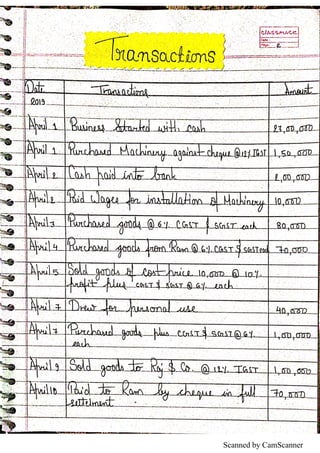 CLASSMATE
Date
Page 2
Transactions
Date Transactions Amount
2019
April 1 Business Started with cash 23,00,000
April 1 Purchased Machinery against cheque @12% IGST 1,50,000
April 2 Cash paid into bank 2,00,000
April 2 Paid Wages for installation of Machinery 10,000
April 3 Purchased goods @ 6% CGST & SGST each 80,000
April 4 Purchased goods from Ram @ 6% CGST & SGST each 70,000
April 5 Sold goods of cost price 10,000 @ 10%
profit plus CGST & SGST @ 6% each
April 7 Drew for personal use 40,000
April 7 Purchased goods plus CGST & SGST @ 6% 1,00,000
each
April 9 Sold goods to Raj & Co. @ 12% IGST 1,00,000
April 10 Paid to Ram by cheque in full 70,000
settelment.
Scanned by CamScanner